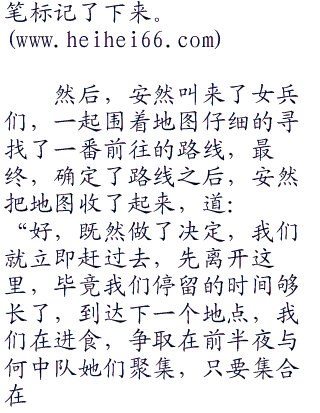 笔标记了下来。
(www.heihei66.com)
然后，安然叫来了女兵
们，一起围着地图仔细的寻
找了一番前往的路线，最
终，确定了路线之后，安然
把地图收了起来，道：
“好，既然做了决定，我们
就立即赶过去，先离开这
里，毕竟我们停留的时间够
长了，到达下一个地点，我
们在进食，争取在前半夜与
何中队她们聚集，只要集合
在